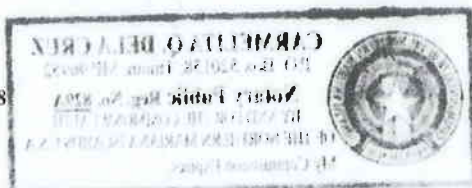 CARMELITA O. DELA CRUZ
P.O. Box 520158, Tinian, MP 96952
8
Notary Public Reg. No. 829A
IN AND FOR THE COMMONWEALTH
OF THE NORTHERN MARIANA ISLANDS
My Commission Expires